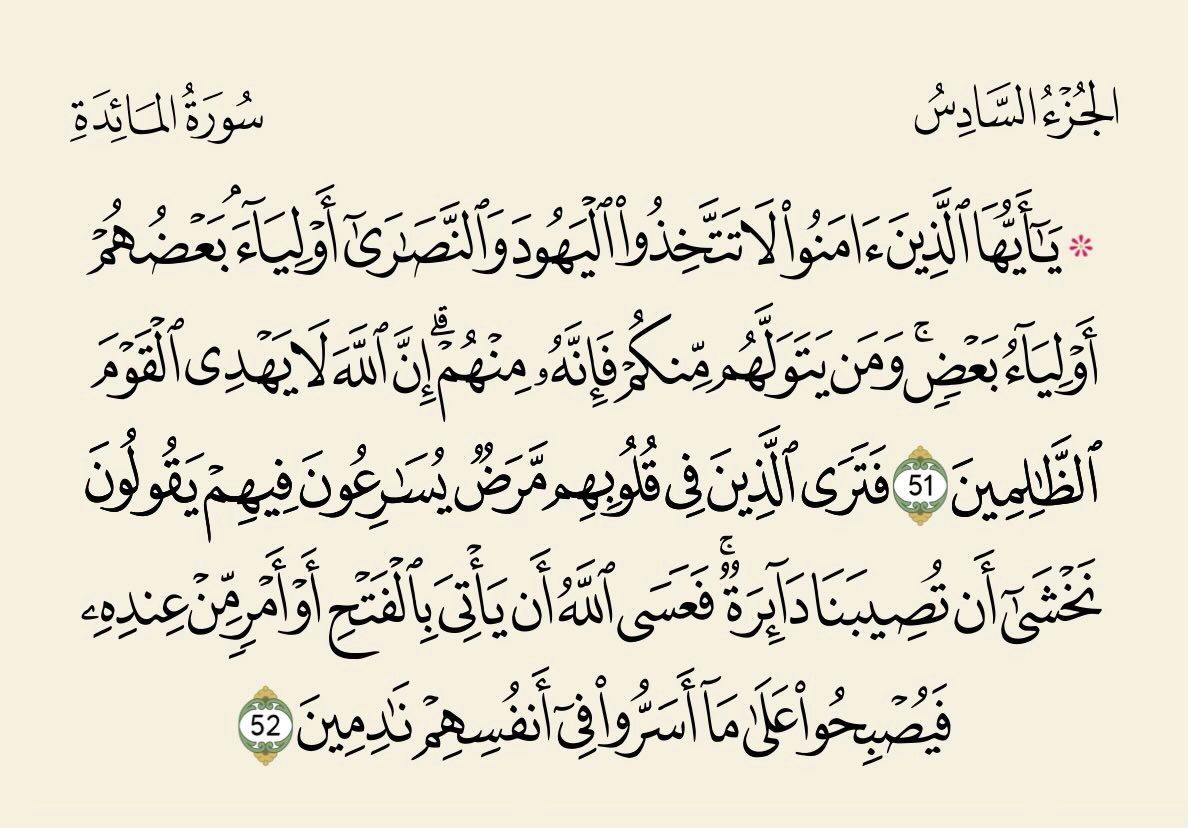 الجُزْءُ السَّادِسُ
سُورَةُ المَائِدَةِ
۞ يَـٰٓأَيُّهَا ٱلَّذِينَ ءَامَنُوا۟ لَا تَتَّخِذُوا۟ ٱلْيَهُودَ وَٱلنَّصَـٰرَىٰٓ أَوْلِيَآءَ ۘ بَعْضُهُمْ
أَوْلِيَآءُ بَعْضٍ ۚ وَمَن يَتَوَلَّهُم مِّنكُمْ فَإِنَّهُۥ مِنْهُمْ ۗ إِنَّ ٱللَّهَ لَا يَهْدِى ٱلْقَوْمَ
ٱلظَّـٰلِمِينَ 51 فَتَرَى ٱلَّذِينَ فِى قُلُوبِهِم مَّرَضٌ يُسَـٰرِعُونَ فِيهِمْ يَقُولُونَ
نَخْشَىٰٓ أَن تُصِيبَنَا دَآئِرَةٌ ۚ فَعَسَى ٱللَّهُ أَن يَأْتِىَ بِٱلْفَتْحِ أَوْ أَمْرٍ مِّنْ عِندِهِۦ
فَيُصْبِحُوا۟ عَلَىٰ مَآ أَسَرُّوا۟ فِىٓ أَنفُسِهِمْ نَـٰدِمِينَ 52